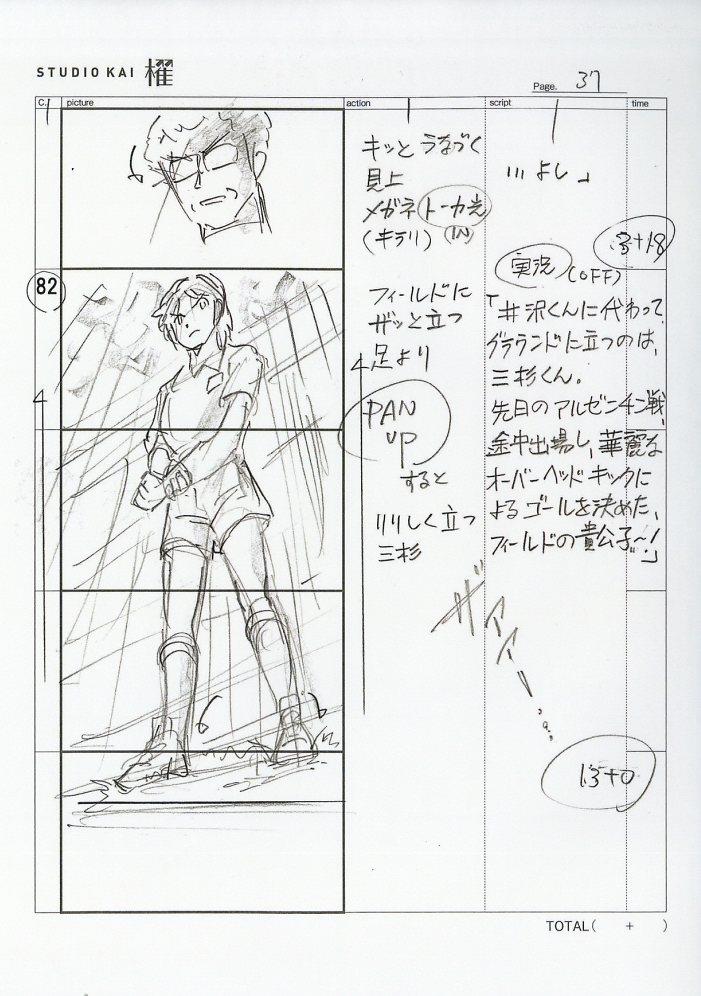 STUDIO KAI 櫂
Page. 37
C. picture action script time
キッとうなづく
見上
メガネトーカ光
(キラリ) IN
...よし」
3+18
82
フィールドに
ザッと立つ
足より
PAN
UP
すると
りりしく立つ
三杉
実況 (OFF)
「井沢くんに代わって
グラウンドに立つのは、
三杉くん。
先日のアルゼンチン戦、
途中出場し、華麗な
オーバーヘッドキックに
よるゴールを決めた、
フィールドの貴公子〜!」
ザァァー...
13+0
TOTAL( + )